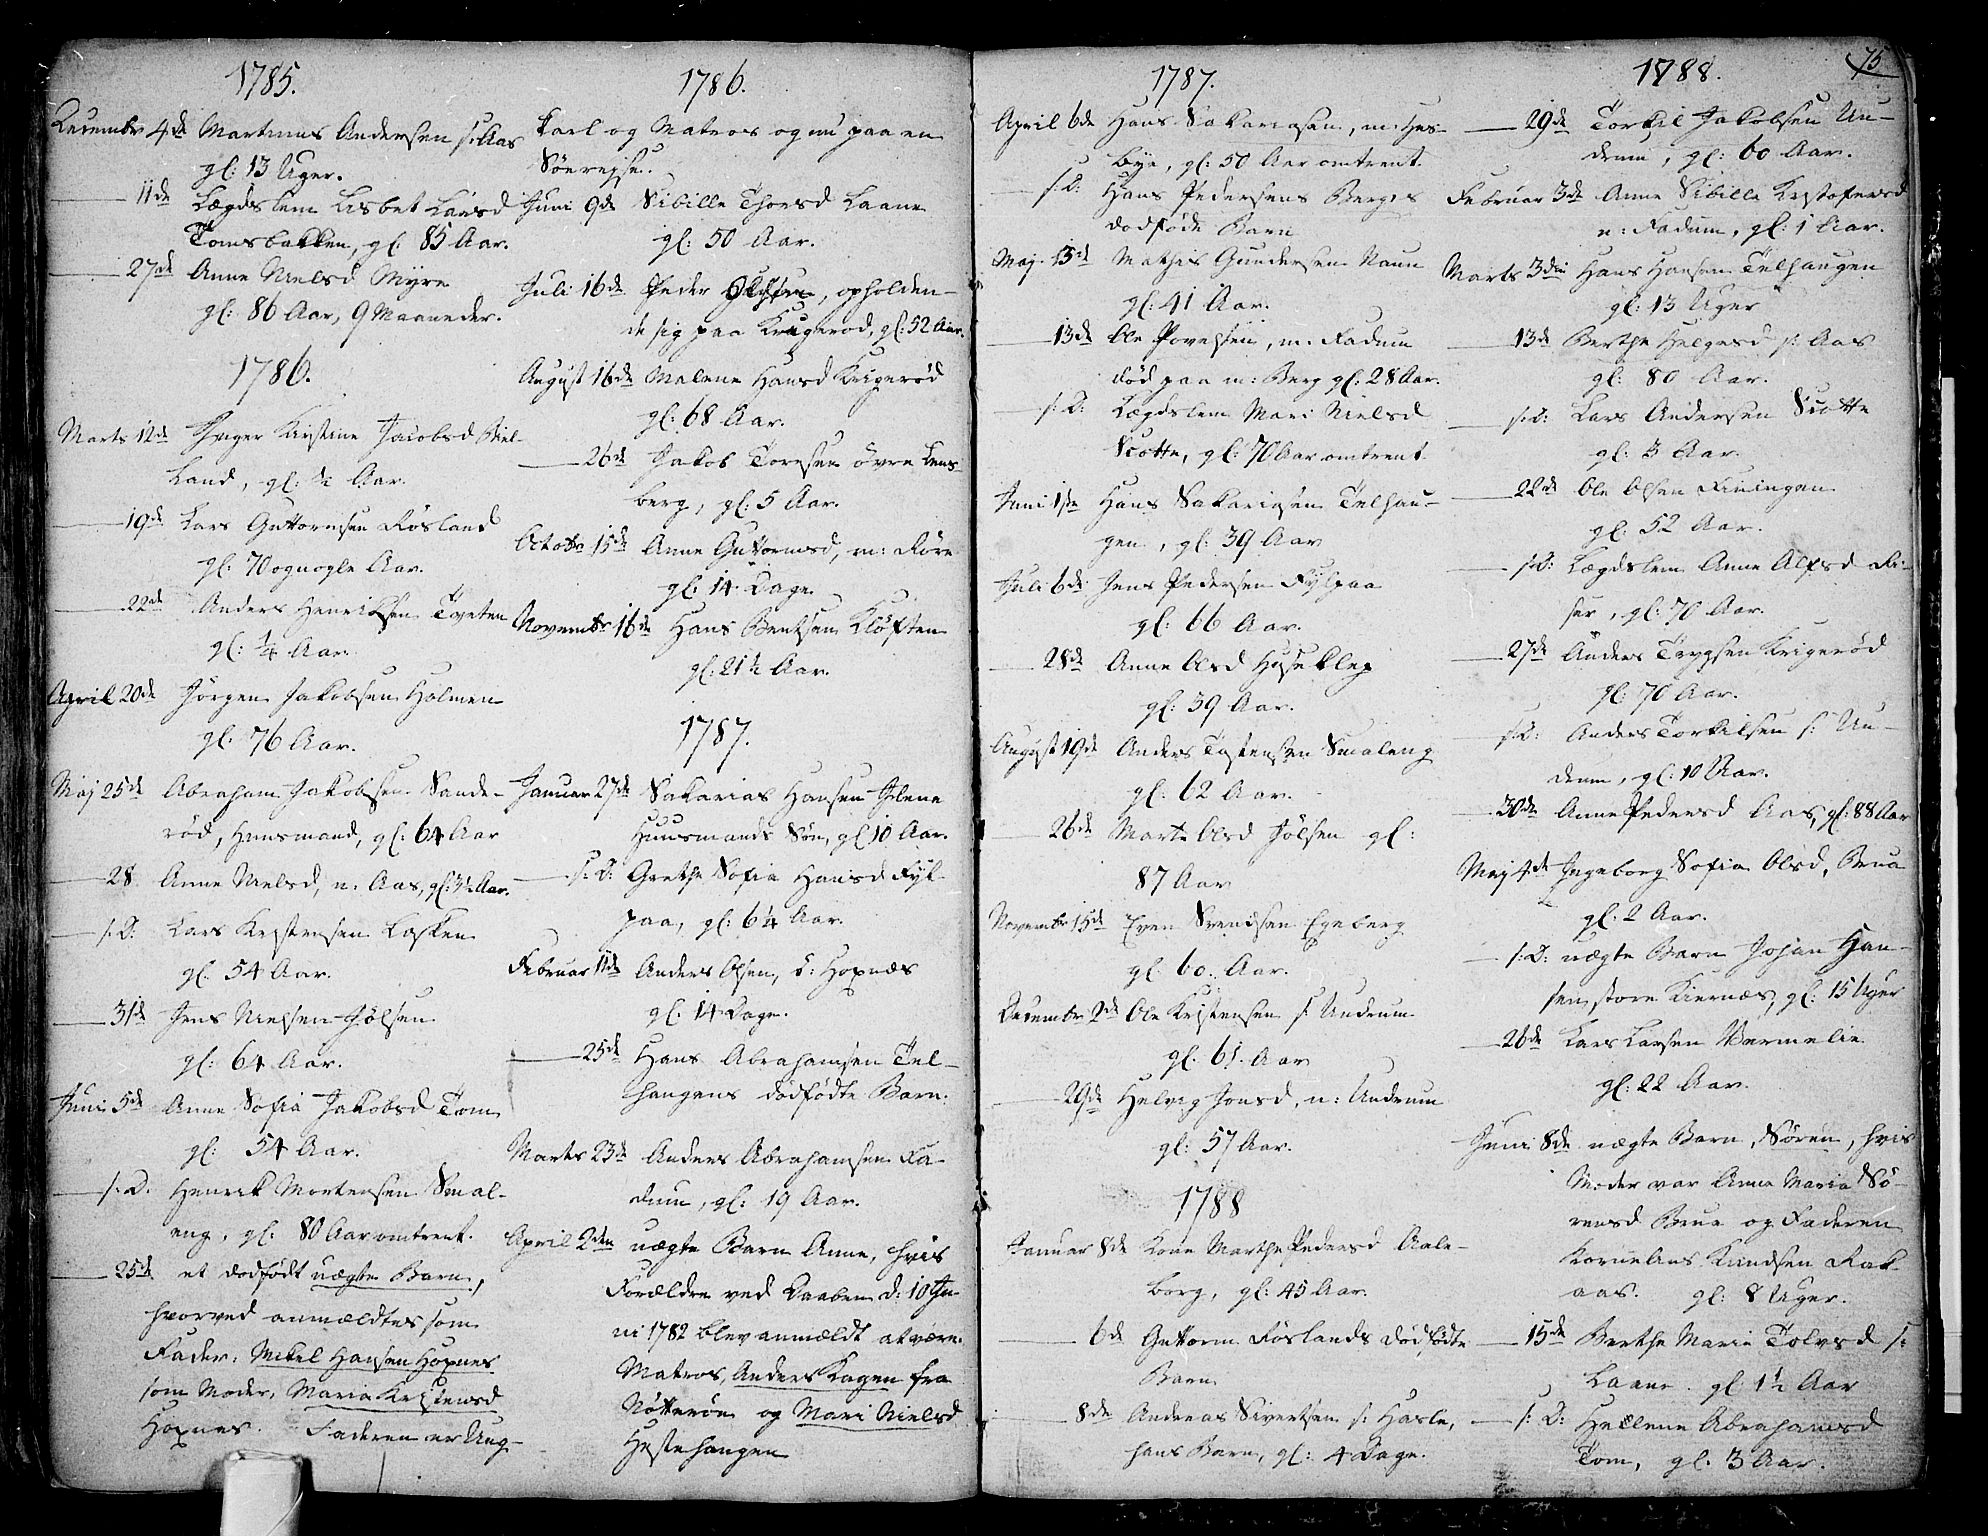 1785.
Decembr 4de Martinus Andersen s: Aas
gl: 13 Uger.
11de Lægdslem Lisbet Larsd
Tomsbakken, gl: 85 Aar.
27de Anne Nielsd Myre
gl: 86 Aar, 9 Maaneder.
1786.
Marts 12de Inger Kirstine Jacobsd Biel-
land, gl: ½ Aar.
19de Lars Guttormsen Røsland
gl: 70 og nogle Aar.
22de Anders Henriksen Tveten
gl: ¼ Aar.
April 20de Jörgen Jakobsen Holmen
gl: 76 Aar.
Maj 25de Abraham Jakobsen Sande-
röd, Huusmand, gl: 64 Aar
28. Anne Nielsd, n: Aas, gl: 3½ Aar.
s: D: Lars Kristensen Løkken
gl. 54 Aar.
31de Jens Nielsen Jölsen
gl: 64 Aar.
Juni 5de Anne Sofia Jakobsd Tom
gl: 54 Aar.
s: D. Henrik Mortensen Smal-
eng, gl: 80 Aar omtrent.
25de et dødfødt uægte Barn,
hvorved anmældtes som
Fader: Mikel Hansen Hoxnes
som Moder, Maria Kristensd
Hoxnes. Faderen er Ung-
1786.
karl og Matros og nu paa en
Söereyse.
Juni 9de Sibille Thorsd Laane
gl: 50 Aar.
Juli 16de Peder Olsen, opholden-
de sig paa Krugerod, gl: 52 Aar.
August 16de Malene Hansd Krigeröd
gl: 68 Aar.
26de Jakob Toresen övre Lens-
berg, gl: 5 Aar.
Octobr 15de Anne Guttormsd, m: Röre
gl: 14 Dage.
Novembr 16de Hans Bentsen Klöften
gl: 21½ Aar.
1787.
Januar 27de Sakarias Hansen Ilene
Huusmands Sön, gl 10 Aar.
s: D: Grethe Sofia Hansd Fyl-
paa, gl: 6¼ Aar.
Februar 11de Anders Olsen, ö: Hoxnæs
gl: 14 Dage.
25de Hans Abrahamsen Tel-
haugens dödfödte Barn.
Marts 23de Anders Abrahamsen Fa-
dum, gl: 19 Aar.
April 2den uægte Barn Anne, hvis
Forældre ved Daaben d: 10 Ju-
ni 1782 blev anmældt at være
Matros, Anders Kagen fra
Nötteröe og Mari Nielsd
Hestehaugen
1787.
April 6de Hans Sakariasen, m: Hes-
bye, gl: 50 Aar omtrent.
s: D: Hans Pedersens Berges
dødføde Barn
Maj 13de Mathis Gundersen Naun
gl: 41 Aar.
13de Ole Povelsen, m: Fadum
död paa m: Berg gl: 28 Aar.
s: D: Lægdslem Mari Nielsd
Scotte, gl: 70 Aar omtrent
Juni 1ste Hans Sakariasen Telhau-
gen, gl: 39 Aar
Juli 6de Jens Pedersen Fylpaa
gl: 66 Aar.
28de Anne Olsd Haseklep
gl: 39 Aar.
August 19de Anders Tostensen Smaleng
gl: 62 Aar.
26de Marte Olsd Jölsen gl:
87 Aar
Novembr 15de Even Svendsen Egeberg
gl: 60. Aar.
Decembr 2de Ole Kristensen s: Undrum
gl: 61. Aar
29de Helvig Jonsd, n: Undrum
gl: 57 Aar.
1788
Januar 8de Kone Marthe Pedersd Aale-
borg, gl: 45 Aar.
6de Guttorm Röslands dödfödte
Barn
8de Andreas Sivertsen s: Hasle,
hans Barn, gl: 4 Dage.
1788.
75
29de Torkil Jakobsen Un-
drum, gl: 60 Aar.
Februar 3de Anne Sibille Kristofersd
n: Fadum, gl: 1 Aar.
Marts 3die Hans Hansen Telhaugen
gl: 13 Uger
13de Berthe Helgesd s: Aas
gl: 80 Aar.
s: D: Lars Andersen Scotte
gl: 3 Aar.
22de Ole Olsen Finingen
gl: 52 Aar.
s: D: Lægdslem Anne Alfsd Ri-
ser, gl: 70 Aar.
27de Anders Trygsen Krigeröd
gl: 70 Aar.
s: D: Anders Torkilsen s: Un-
drum, gl: 10 Aar.
30de Anne Pedersd Aas, gl: 88 Aar
Maj 4de Ingeborg Sofia Olsd, Brua
gl: 2 Aar.
s: D: uægte Barn Johan Han-
sen store Kiernæs, gl: 15 Uger
26de Lars Larsen Vermelie
gl: 22 Aar.
Juni 8de uægte Barn, Sören, hvis
Moder var Anne Maria Sö-
rensd Brue og Faderen
Kornelius Knudsen Rak-
aas. gl: 8 Uger.
15de Berthe Marie Tolvsd s:
Laane. gl 1½ Aar
s: D: Hellene Abrahamsd
Tom, gl. 3 Aar.